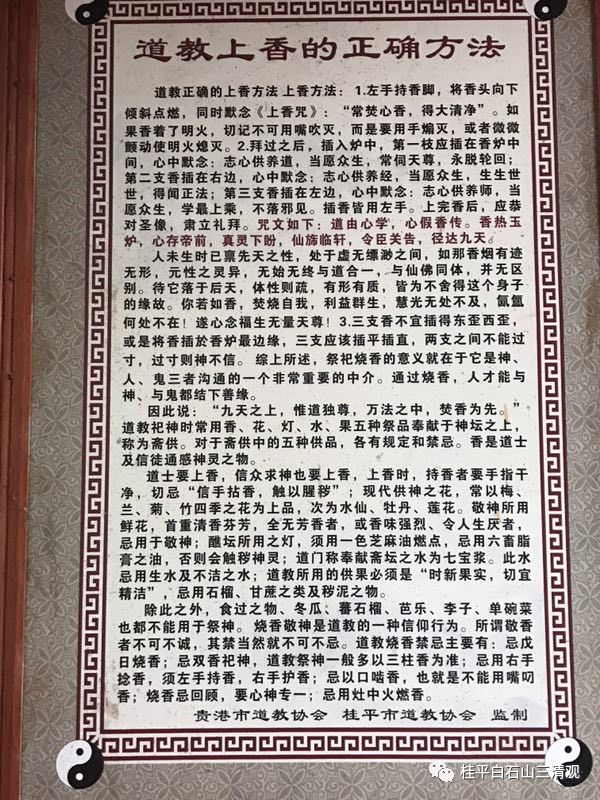 道教上香的正确方法
道教正确的上香方法 上香方法：1.左手持香脚，将香头向下
倾斜点燃，同时默念《上香咒》：“常焚心香，得大清净”。如
果香着了明火，切记不可用嘴吹灭，而是要用手煽灭，或者微微
颤动使明火熄灭。2.拜过之后，插入炉中，第一枝应插在香炉中
间，心中默念：志心供养道，当愿众生，常伺天尊，永脱轮回；
第二支香插在右边，心中默念：志心供养经，当愿众生，生生世
世，得闻正法；第三支香插在左边，心中默念：志心供养师，当
愿众生，学最上乘，不落邪见。插香皆用左手。上完香后，应恭
对圣像，肃立礼拜。咒文如下：道由心学，心假香传。香热玉
炉，心存帝前，真灵下盼，仙旆临轩，令臣关告，径达九天。
人未生时已禀先天之性，处于虚无缥渺之间，如那香烟有迹
无形，元性之灵异，无始无终与道合一，与仙佛同体，并无区
别。待它落于后天，体性则疏，有形有质，皆为不舍得这个身子
的缘故。你若如香，焚烧自我，利益群生，慧光无处不及，氤氲
何处不在！遂心念福生无量天尊！3.三支香不宜插得东歪西歪，
或是将香插於香炉最边缘，三支应该插平插直，两支之间不能过
寸，过寸则神不信。 综上所述，祭祀烧香的意义就在于它是神、
人、鬼三者沟通的一个非常重要的中介。通过烧香，人才能与
神、与鬼都结下善缘。
因此说：“九天之上，惟道独尊，万法之中，焚香为先。”
道教祀神时常用香、花、灯、水、果五种祭品奉献于神坛之上，
称为斋供。对于斋供中的五种供品，各有规定和禁忌。香是道士
及信徒通感神灵之物。
道士要上香，信众求神也要上香，上香时，持香者要手指干
净，切忌“信手拈香，触以腥秽”；现代供神之花，常以梅、
兰、菊、竹四季之花为上品，次为水仙、牡丹、莲花。敬神所用
鲜花，首重清香芬芳，全无芳香者，或香味强烈、令人生厌者，
忌用于敬神；醮坛所用之灯，须用一色芝麻油燃点，忌用六畜脂
膏之油，否则会触秽神灵；道门称奉献斋坛之水为七宝浆。此水
忌用生水及不洁之水；道教所用的供果必须是“时新果实，切宜
精洁”，忌用石榴、甘蔗之类及秽泥之物。
除此之外，食过之物、冬瓜、蕃石榴、芭乐、李子、单碗菜
也都不能用于祭神。 烧香敬神是道教的一种信仰行为。所谓敬香
者不可不诚，其禁当然就不可不忌。道教烧香禁忌主要有：忌戊
日烧香；忌双香祀神，道教祭神一般多以三柱香为准；忌用右手
捻香，须左手持香，右手护香；忌以口啮香，也就是不能用嘴叼
香；烧香忌回顾，要心神专一；忌用灶中火燃香。
贵港市道教协会 桂平市道教协会 监制
桂平白石山三清观